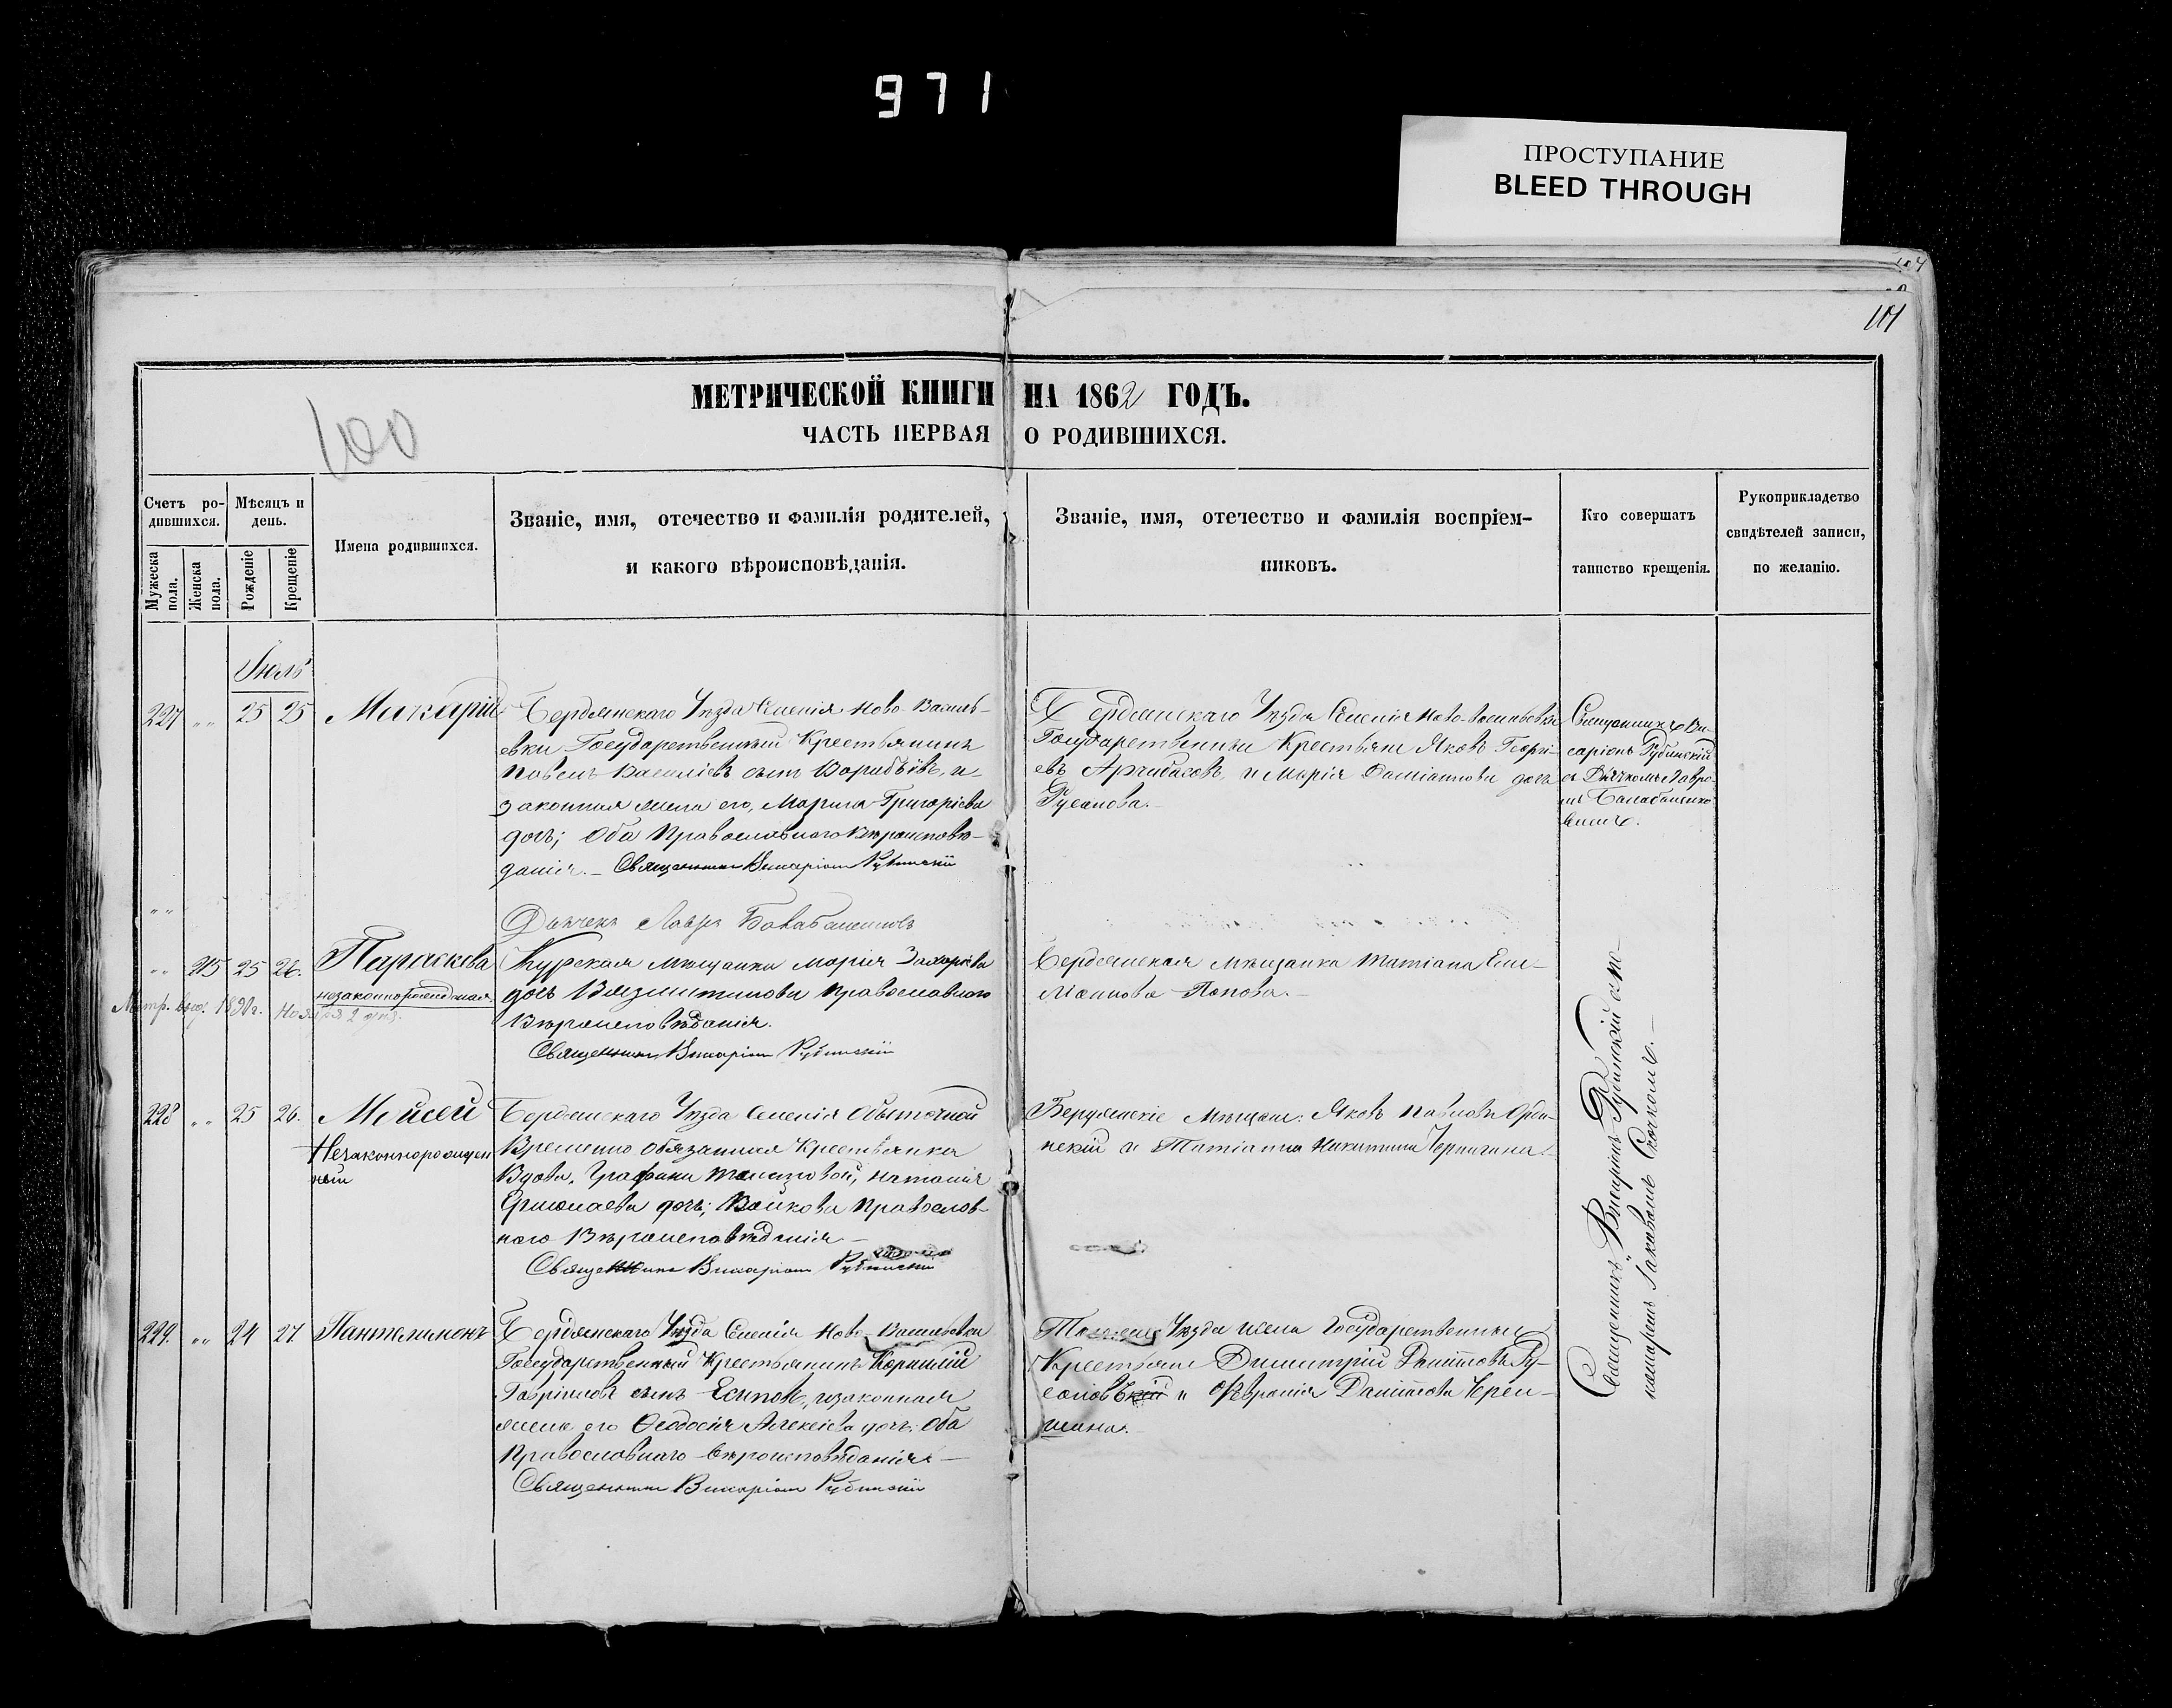 971
ПРОСТУПАНИЕ
BLEED THROUGH
101
МЕТРИЧЕСКОЙ КНИГИ НА 1862 ГОДЪ.
ЧАСТЬ ПЕРВАЯ О РОДИВШИХСЯ.
100
Счетъ ро-
дившихся.
Мужеска
пола.
Женска
пола.
Мѣсяцъ и
день.
Рожденіе
Крещеніе
Имена родившихся.
Званіе, имя, отечество и фамилія родителей,
и какого вѣроисповѣданія.
Званіе, имя, отечество и фамилія воспріем-
никовъ.
Кто совершатъ
таинство крещенія.
Рукоприкладство
свидѣтелей записи,
по желанію.
Іюль
227 „ „ 25 25 Макарій
Бердянскаго Уѣзда Селенія Ново-Василь-
евки Государственный Крестьянинъ
Павелъ Василіевъ сынъ Воробьевъ, и
законная жена его, Марина Григоріева
дочь; Оба Православнаго Вѣроисповѣ-
данія. – Священникъ Висаріонъ Рубинскій
Дьячекъ Лавръ
Бердянскаго Уѣзда Селенія Ново-Васильевки
Государственныи Крестьяне Яковъ Георгі-
евъ и Марія Даміанова дочь
Русанова. –
Священникъ Ви-
саріонъ Рубинскій
съ Дьячкомъ Лавро-
мъ
„ „ 215 25 26. Параскева
незаконнорожденная
Метр. выд. 1890г. Ноября 2 дня.
Курская Мѣщанка Марія Захарьева
дочь Православнаго
Вѣроисповѣданія.
Священникъ Висаріонъ Рубинскій
Бердянская Мѣщанка Татіана Еме-
ліанова Попова. –
228 „ „ 25 26. Мойсей
Незаконнорожден
ный
Бердянскаго Уѣзда Селенія Обыточной
Временно обязанная Крестьянка
Вдова, Графини Наталія
Ермолаева дочь; Волкова Православ-
наго Вѣроисповѣданія –
Священникъ Висаріонъ Рубинскій
Мѣщане: Яковъ Павловъ
нскій и Татіана Никитина
Священникъ Висаріонъ Рубинскій съ по-
номаремъ Іаковомъ
229. „ „ 24 27 Пантелимонъ
Бердянскаго Уѣзда Селенія Ново-Васильевки
Государственный Крестьянинъ Корнилій
Гавріиловъ сынъ Есиповъ, и законная
жена его Феодосія Алексіева дочь. Оба
Православнаго Вѣроисповѣданія. –
Священникъ Висаріонъ Рубинскій
Уѣзда Государственныи
Крестьяне Димитрій Даніиловъ Ру-
сановъ и Февронія Даніилова